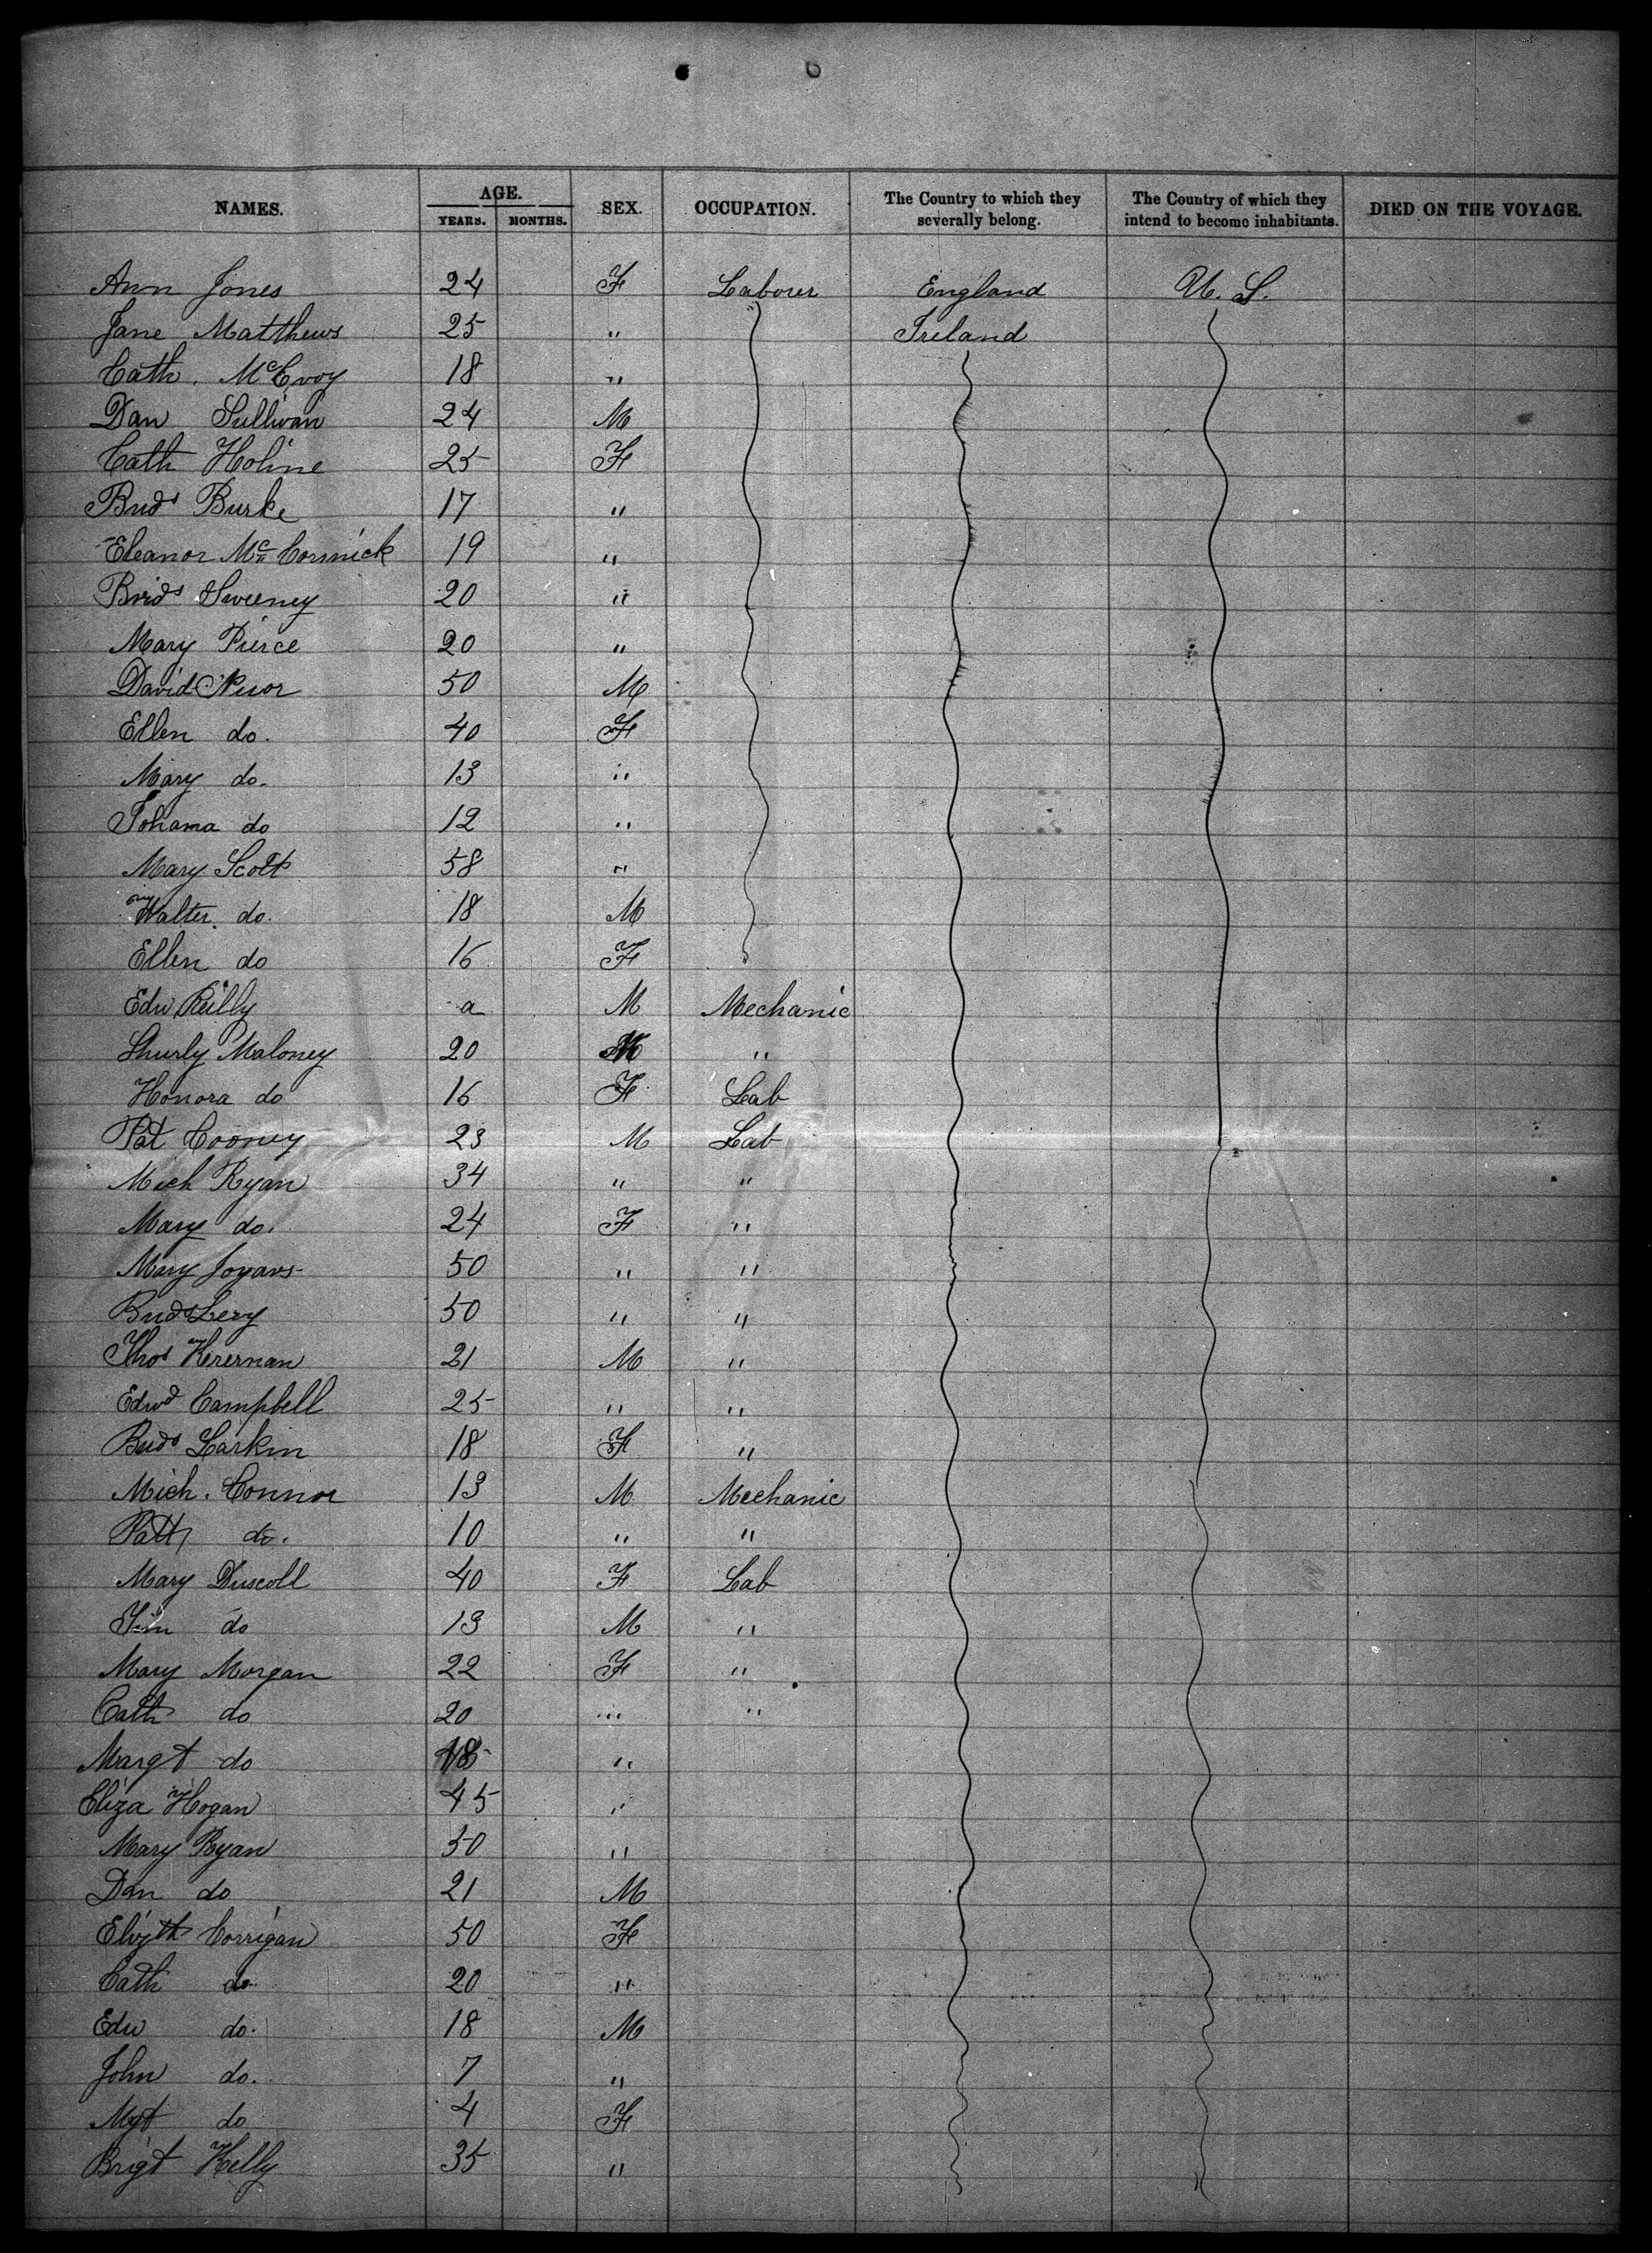 NAMES. AGE. YEARS. MONTHS. SEX. OCCUPATION. The Country to which they severally belong. The Country of which they intend to become inhabitants. DIED ON THE VOYAGE.
Ann Jones 24 F Laborer England U. S.
Jane Matthews 25 " Ireland
Cath. McEvoy 18 "
Dan Sullivan 24 M
Cath Holine 25 F
Brids Burke 17 "
Eleanor Mc Cormick 19 "
Brids Sweeney 20 "
Mary Pierce 20 "
David 50 M
Ellen do. 40 F
Mary do. 13 "
Johama do 12 "
Mary Scott 58 "
Walter do. 18 M
Ellen do 16 F
Edw Reilly a M Mechanic
Maloney 20 M "
Honora do 16 F Lab
Pat Cooney 23 M Lab
Mich Ryan 34 " "
Mary do. 24 F "
Mary 50 " "
Brids 50 " "
Thos 21 M "
Edwd Campbell 25 " "
Brids Larkin 18 F "
Mich. Connor 13 M Mechanic
Patk do. 10 " "
Mary Driscoll 40 F Lab
do 13 M "
Mary Morgan 22 F "
Cath do 20 " "
Margt do "
Eliza Hogan 45 "
Mary Ryan 50 "
Dan do 21 M
Elizth Corrigan 50 F
Cath do 20 "
Edw do. 18 M
John do. 7 "
Mgt do 4 F
Brigt Kelly 35 "